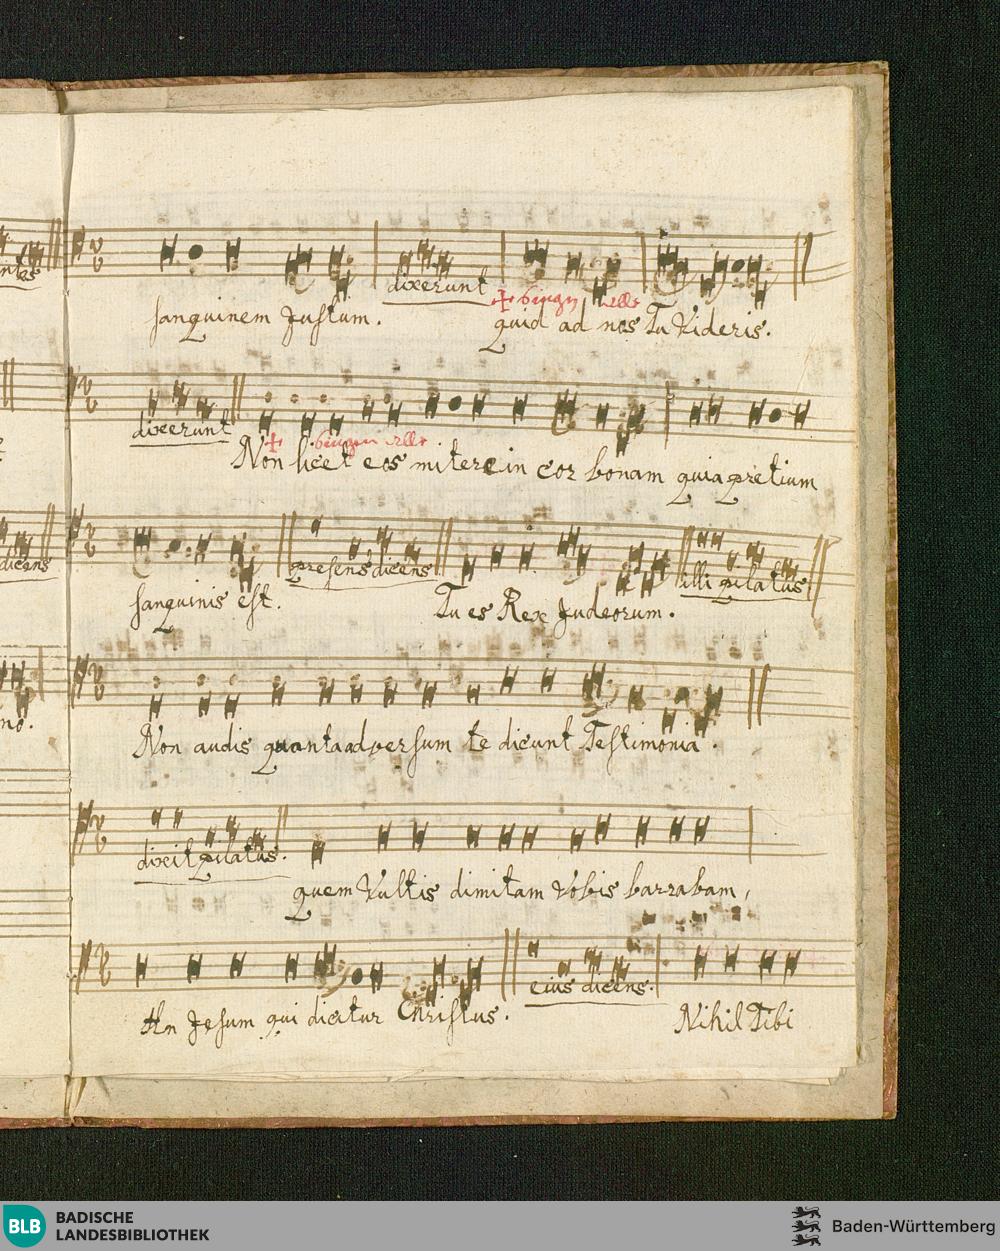 dixerunt
+ singen alle
sanguinem Justum. quid ad nos Tu Videris.
dixerunt
+ singen alle
Non licet eos mitere in cor bonam quia pretium
dicens
presens dicens
illi pilatus
sanguinis est. Tu es Rex Judeorum.
Non audis quanta adversum te dicunt Testimonia.
dixit pilatus.
quem Vultis dimitam Vobis barrabam,
eius dicens.
An Jesum qui dicitur Christus. Nihil Tibi
BLB BADISCHE
LANDESBIBLIOTHEK
Baden-Württemberg